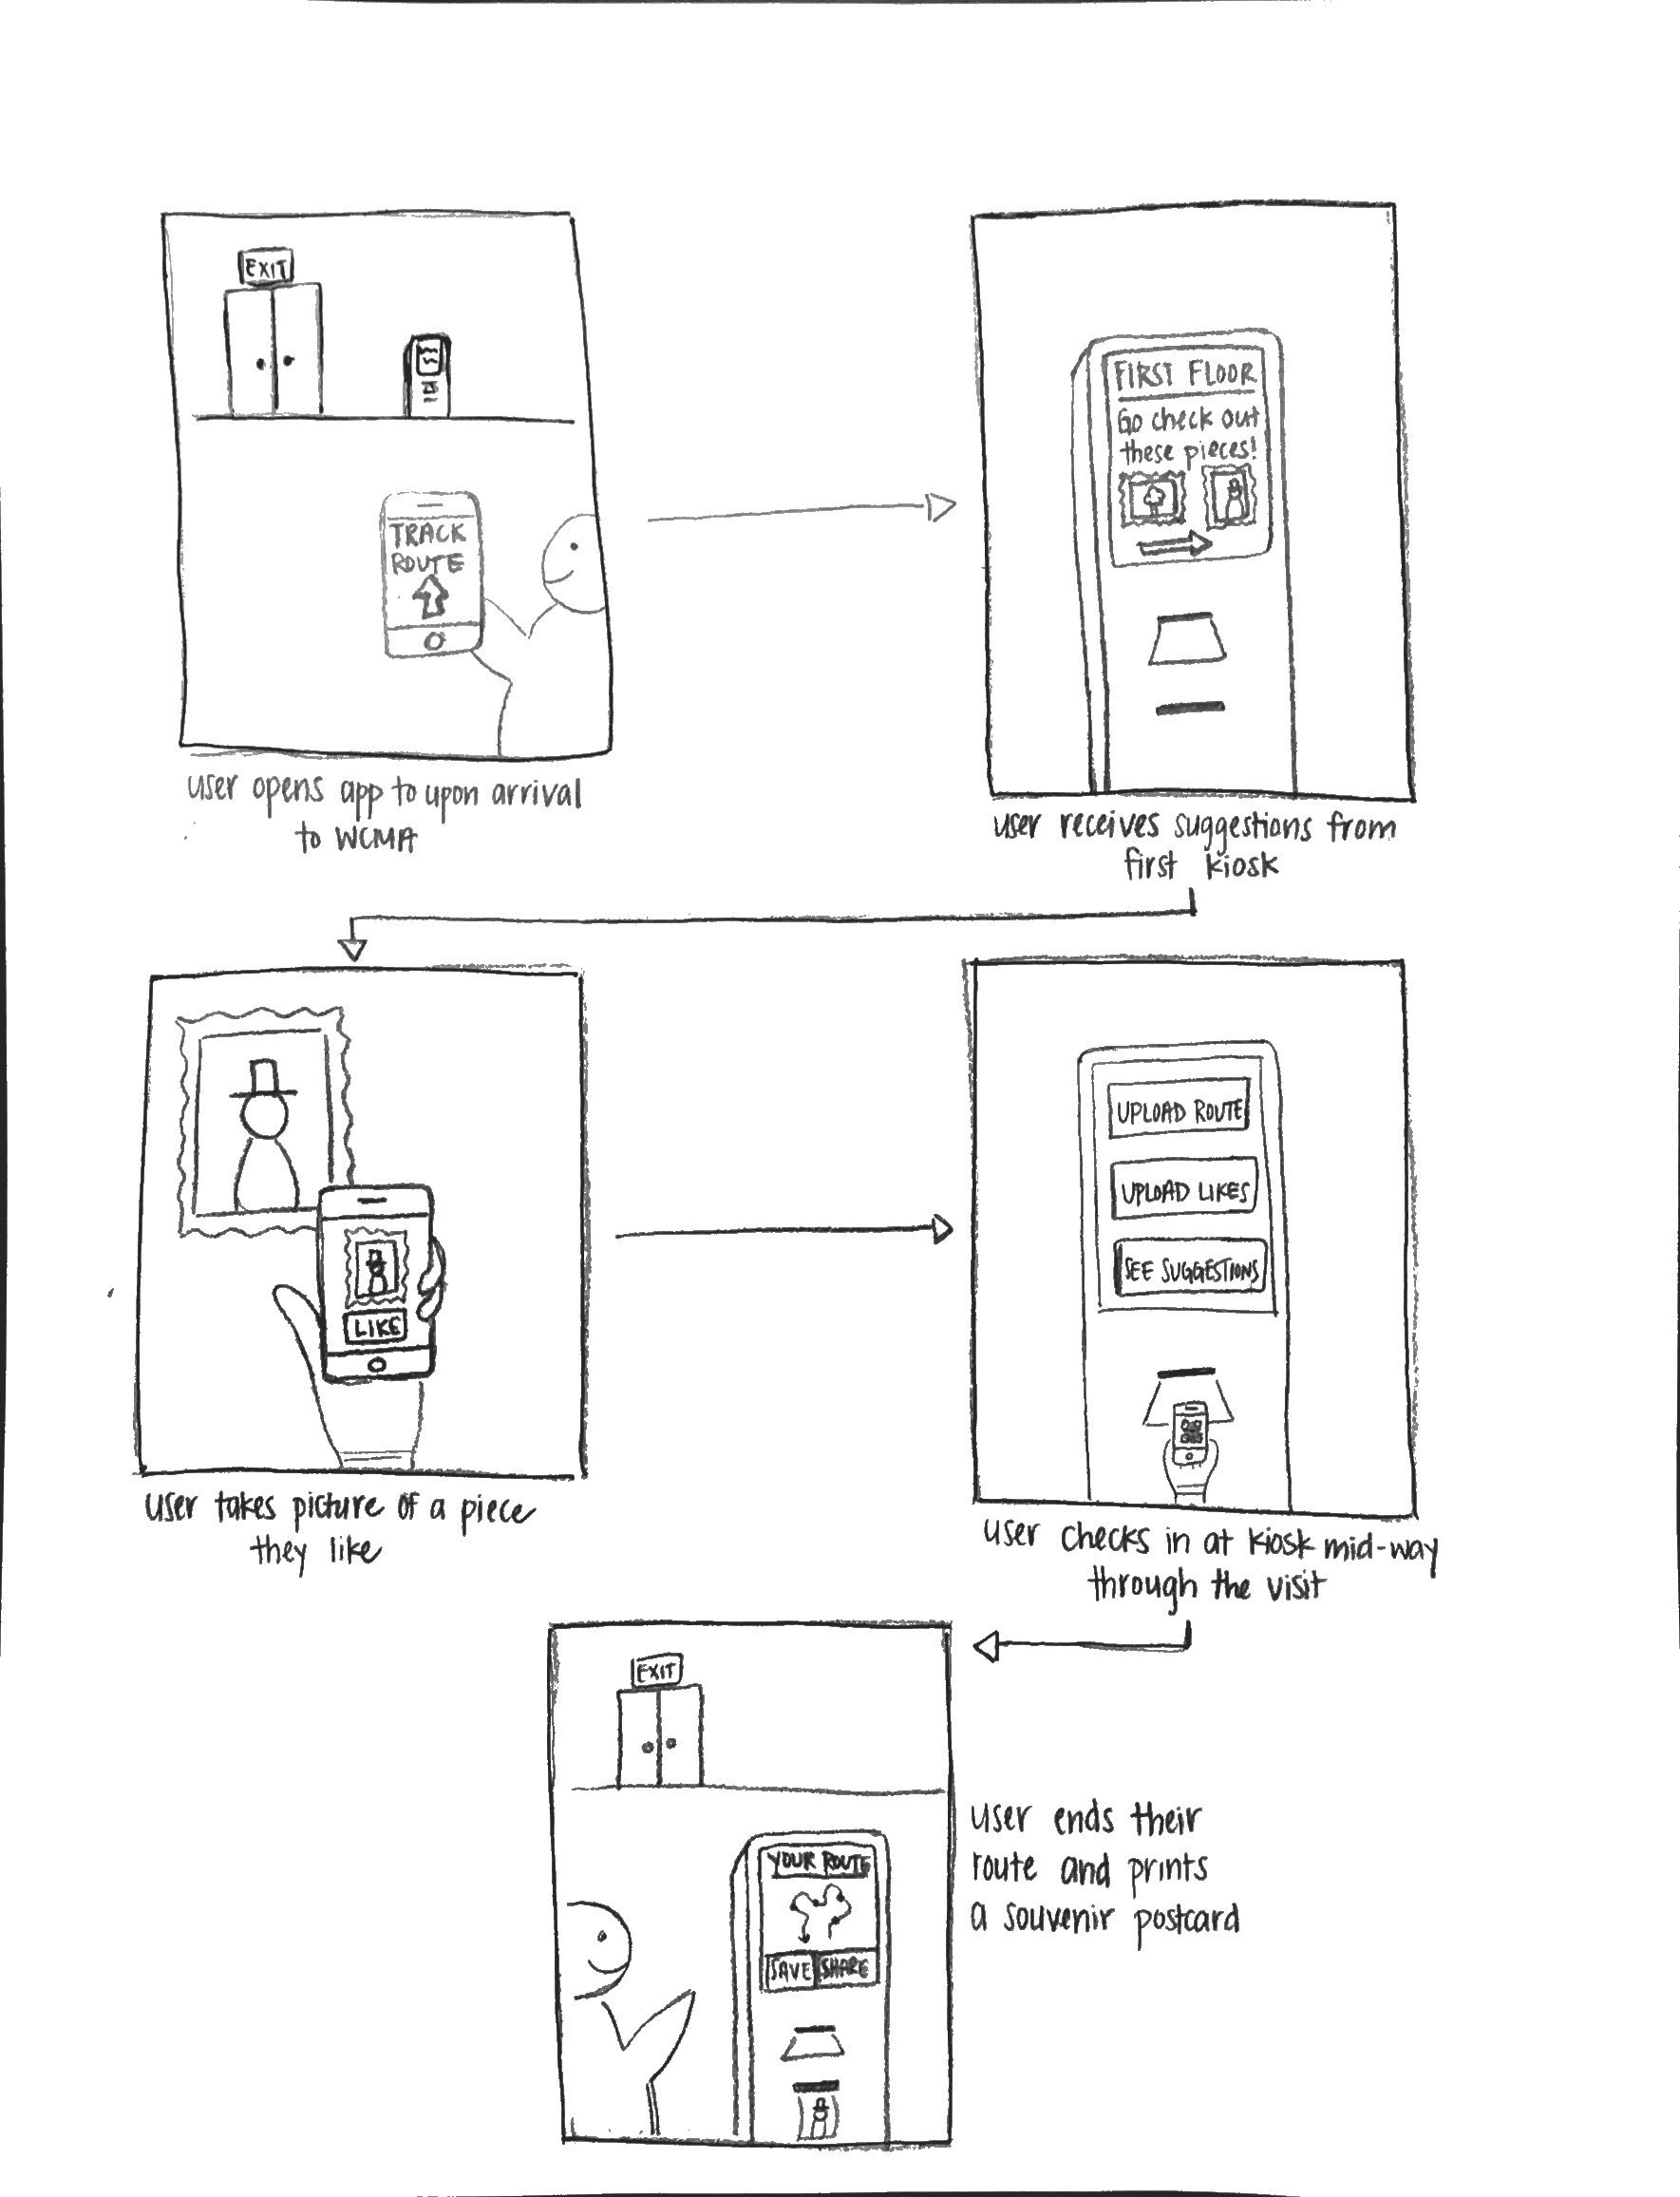 EXIT
TRACK
ROUTE
user opens app to upon arrival
to WCMA
FIRST FLOOR
Go check out
these pieces!
user receives suggestions from
first kiosk
LIKE
user takes picture of a piece
they like
UPLOAD ROUTE
UPLOAD LIKES
SEE SUGGESTIONS
user checks in at kiosk mid-way
through the visit
EXIT
YOUR ROUTE
SAVE SHARE
user ends their
route and prints
a souvenir postcard